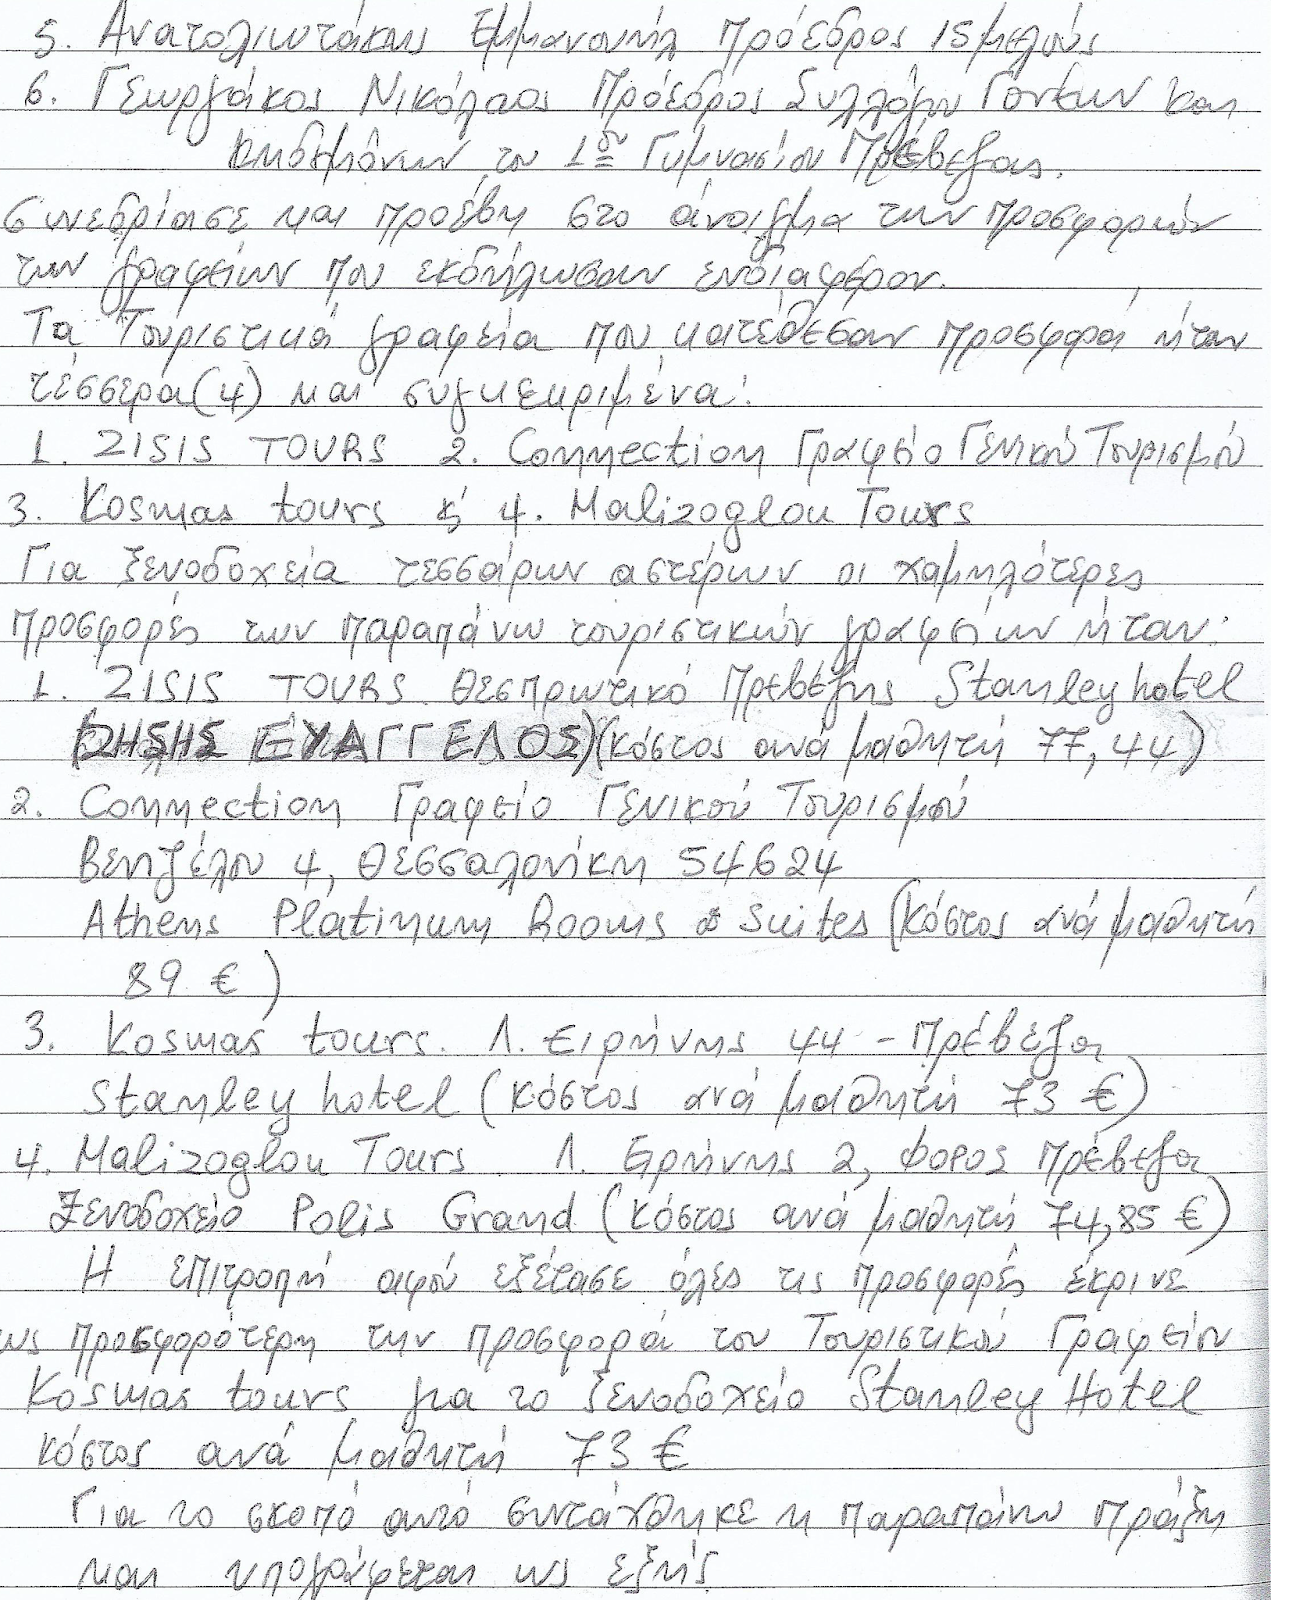 5. Ανατολιωτάκης Εμμανουήλ Πρόεδρος 15μελούς
6. Γεωργάκος Νικόλαος Πρόεδρος Συλλόγου Γονέων και
κηδεμόνων του 1ου Γυμνασίου Πρέβεζας.
συνεδρίασε και προέβη στο άνοιγμα των προσφορών
των γραφείων που εκδήλωσαν ενδιαφέρον.
Τα Τουριστικά γραφεία που κατέθεσαν προσφορά ήταν
τέσσερα (4) και συγκεκριμένα:
1. ZISIS TOURS 2. Connection Γραφείο Γενικού Τουρισμού
3. Kosmas tours & 4. Malizoglou Tours
Για ξενοδοχεία τεσσάρων αστέρων οι χαμηλότερες
προσφορές των παραπάνω τουριστικών γραφείων ήταν:
1. ZISIS TOURS Θεσπρωτικό Πρεβέζης Stanley hotel
(ΖΗΣΗΣ ΕΥΑΓΓΕΛΟΣ) (κόστος ανά μαθητή 77,44)
2. Connection Γραφείο Γενικού Τουρισμού
Βενιζέλου 4, Θεσσαλονίκη 54624
Athens Platinum Rooms & Suites (κόστος ανά μαθητή
89 €)
3. Kosmas tours. Λ. Ειρήνης 44 - Πρέβεζα
Stanley hotel (κόστος ανά μαθητή 73 €)
4. Malizoglou Tours . Λ. Ειρήνης 2, Φόρος Πρέβεζα
Ξενοδοχείο Polis Grand (κόστος ανά μαθητή 74,85 €)
Η επιτροπή αφού εξέτασε όλες τις προσφορές έκρινε
ως προσφορότερη την προσφορά του Τουριστικού Γραφείου
Kosmas tours για το ξενοδοχείο Stanley Hotel
κόστος ανά μαθητή 73 €
Για το σκοπό αυτό συντάχθηκε η παραπάνω πράξη
και υπογράφεται ως εξής